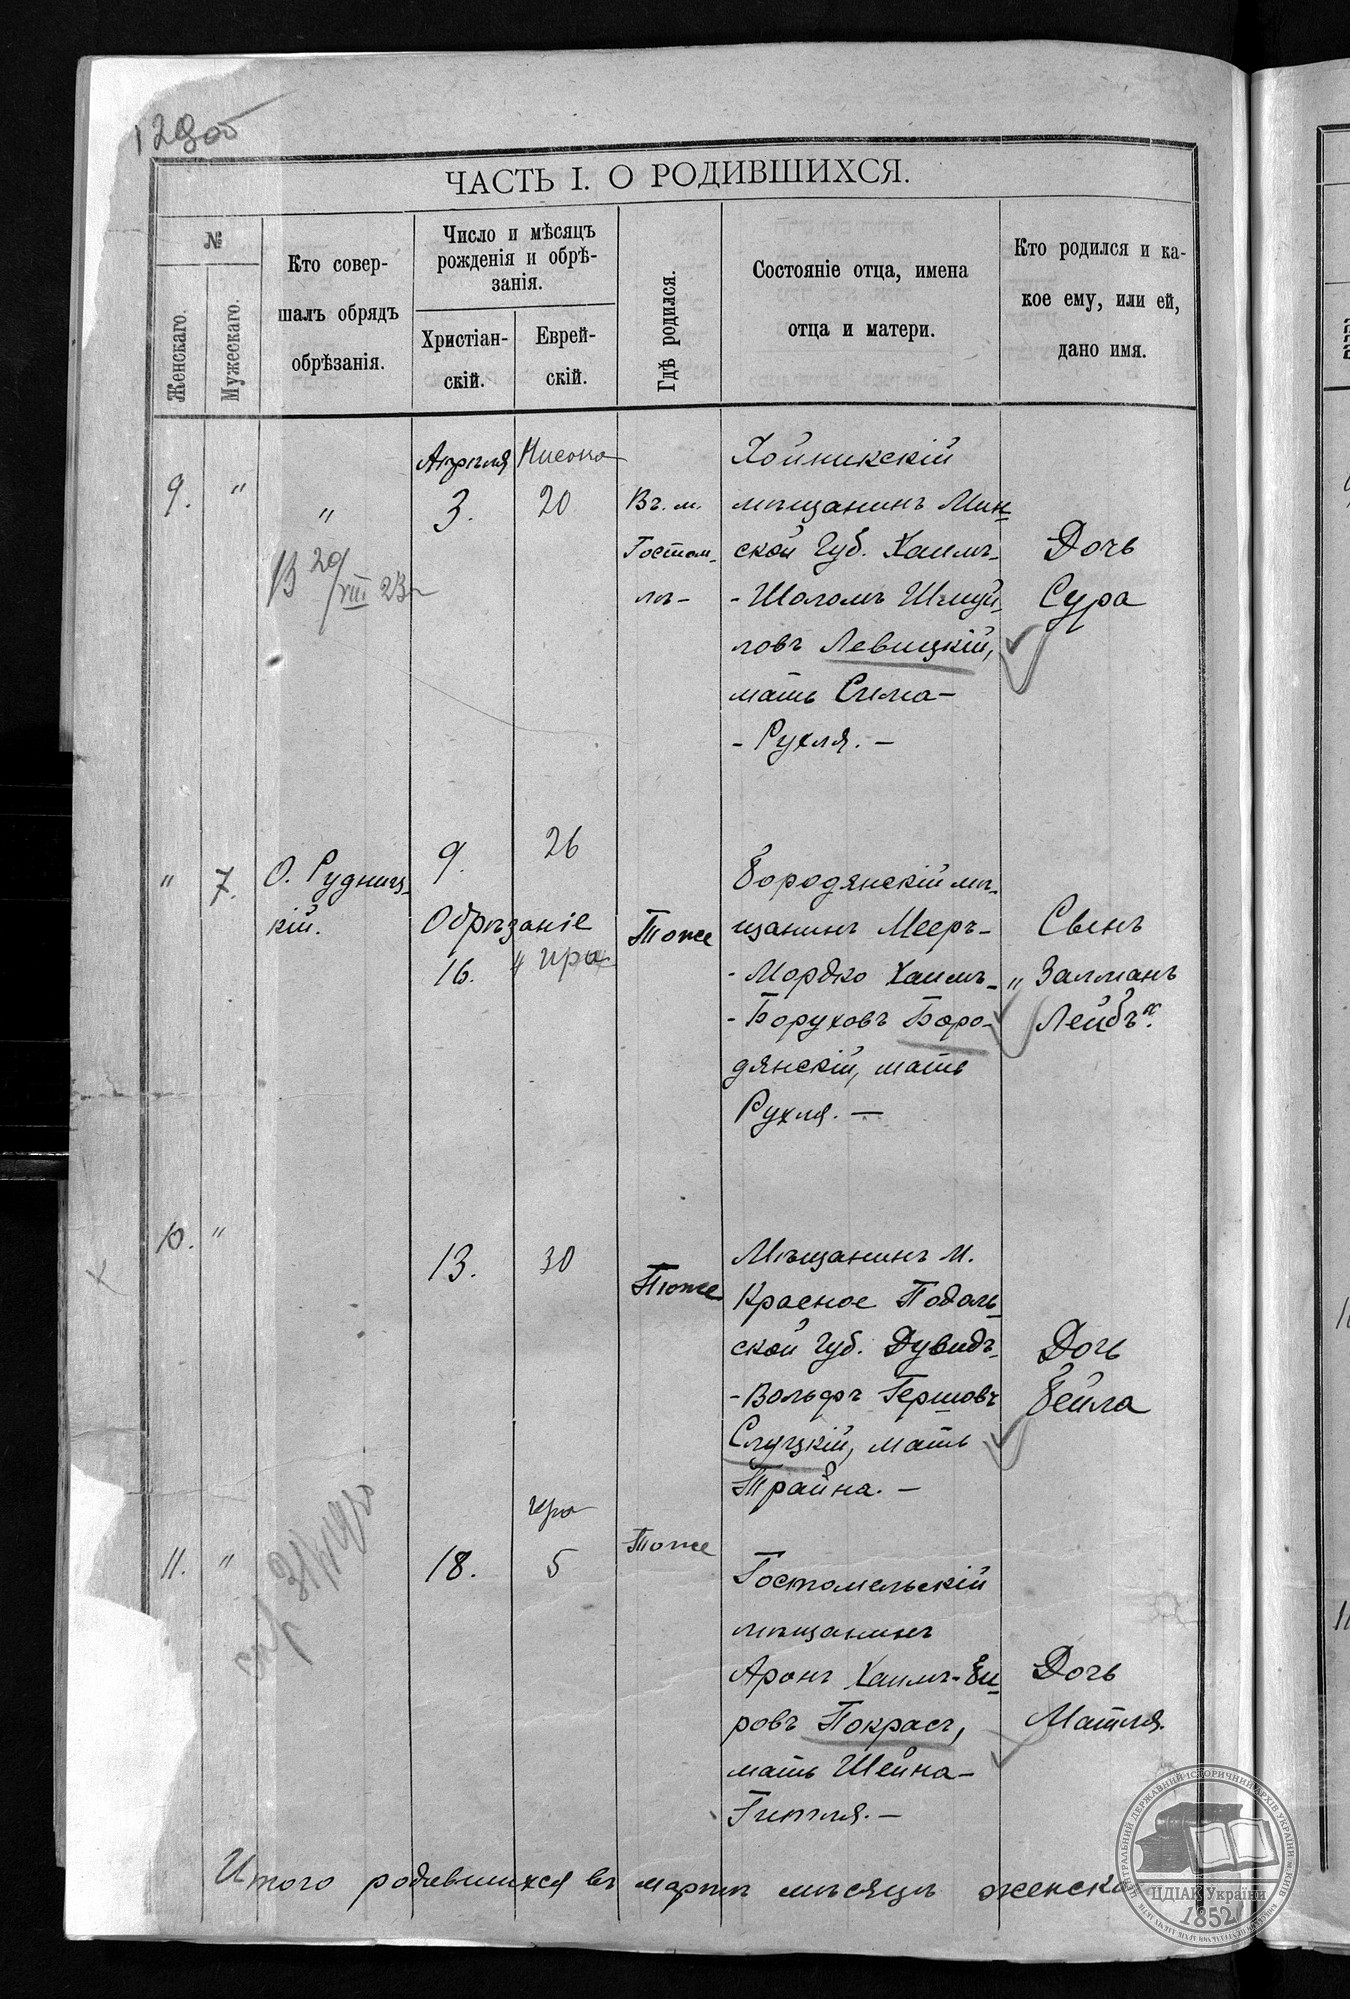 129об
ЧАСТЬ I. О РОДИВШИХСЯ.
№
Женскаго.
Мужескаго.
Кто совер-
шалъ обрядъ
обрѣзанія.
Число и мѣсяцъ
рожденія и обрѣ-
занія.
Христіан-
скій.
Еврей-
скій.
Гдѣ родился.
Состояніе отца, имена
отца и матери.
Кто родился и ка-
кое ему, или ей,
дано имя.
9.
"
"
Апрѣля
3.
Нисона
20
Въ м.
Гостом-
лѣ-
Хойникскій
мѣщанинъ Мин-
ской Губ. Хаимъ-
-Шоломъ Шмуй-
ловъ Левицкій,
мать Сима-
-Рухля. -
Дочь
Сура
В 29/VIII 23
"
7.
О. Рудниц-
кій.
9.
26
Обрѣзаніе
16.
" Ира
Тоже
Бородянскій мѣ-
щанинъ Мееръ-
-Мордко Хаимъ-
-Боруховъ Боро-
дянскій, мать
Рухля. —
Сынъ
„Залманъ
Лейбъ“.
10.
"
13.
30
Тоже
Мѣщанинъ м.
Красное Подоль-
ской Губ. Дувидъ-
-Вольфъ Гершовъ
Слуцкій, мать
Трайна. -
Дочь
Бейла
11.
"
18.
Ира
5
Тоже
Гостомельскій
мѣщанинъ
Аронъ Хаимъ-Бе-
ровъ Покрасъ,
мать Шейна-
Гитля. -
Дочь
Матля.
Итого родившихся въ мартѣ мѣсяцѣ женска
ЦЕНТРАЛЬНИЙ ДЕРЖАВНИЙ ІСТОРИЧНИЙ АРХІВ УКРАЇНИ, м. КИЇВ
ЦДІАК України
1852